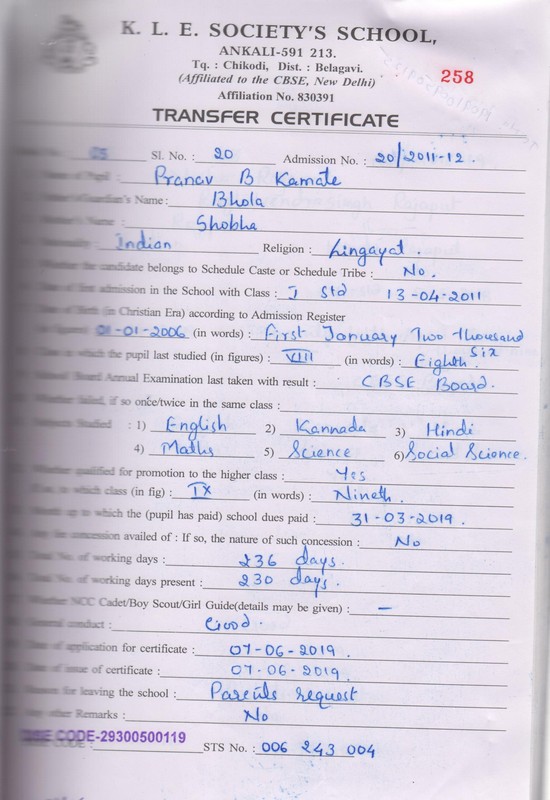 K. L. E. SOCIETY'S SCHOOL,
ANKALI-591 213.
Tq. : Chikodi, Dist. : Belagavi.
(Affiliated to the CBSE, New Delhi)
258
Affiliation No. 830391
TRANSFER CERTIFICATE
05 Sl. No. : 20 Admission No. : 20/2011-12.
of Pupil : Pranav B Kamate
Guardian's Name : Bhola
Name : Shobha
Indian Religion : Lingayat.
Whether the candidate belongs to Schedule Caste or Schedule Tribe : No.
Date of first admission in the School with Class : I Std 13-04-2011
Date of Birth (in Christian Era) according to Admission Register
01-01-2006 (in words) : First January Two thousand Six
Class in which the pupil last studied (in figures) : VIII (in words) : Eighth
Board Annual Examination last taken with result : CBSE Board.
Whether failed, if so once/twice in the same class :
Subjects Studied : 1) English 2) Kannada 3) Hindi
4) Maths 5) Science 6) Social Science.
Whether qualified for promotion to the higher class : Yes
If so, in which class (in fig) : IX (in words) : Nineth.
Month up to which the (pupil has paid) school dues paid : 31-03-2019.
Any fee concession availed of : If so, the nature of such concession : No
Total No. of working days : 236 days.
No. of working days present : 230 days.
Whether NCC Cadet/Boy Scout/Girl Guide(details may be given) : -
General conduct : Good.
Date of application for certificate : 07-06-2019.
Date of issue of certificate : 07-06-2019.
Reason for leaving the school : Parents request
Any other Remarks : No
DISE CODE-29300500119
STS No. : 006 243 004